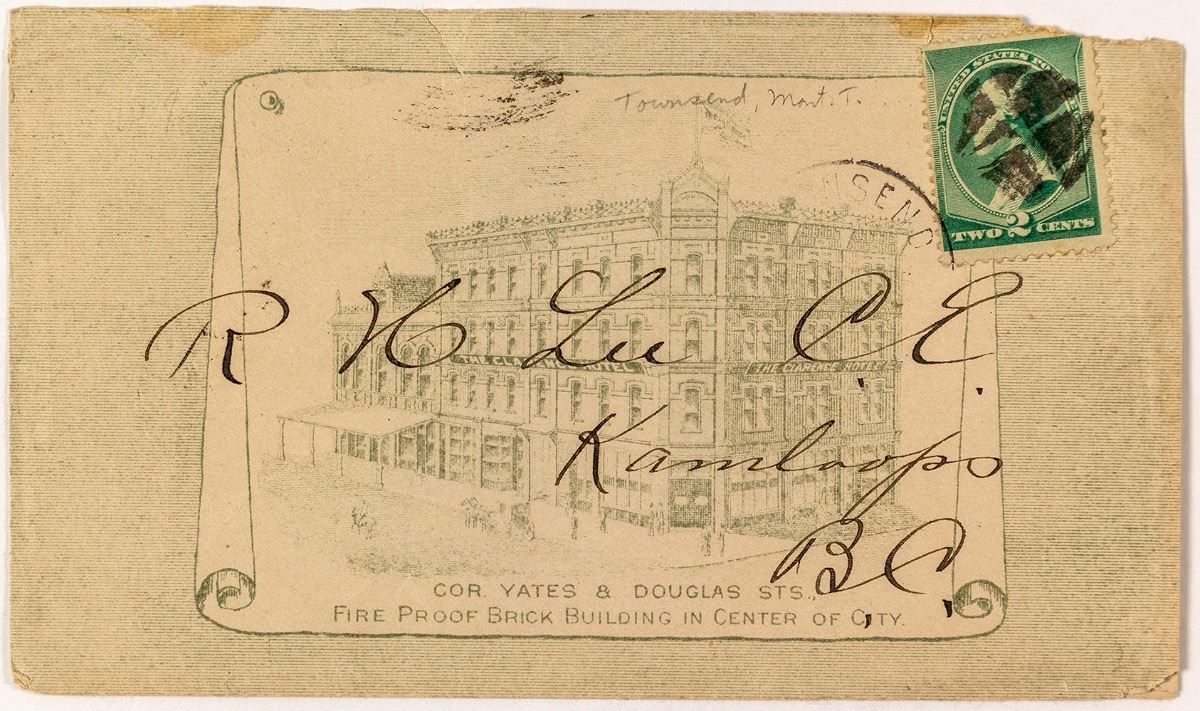 Townsend, Mont. T.
UNITED STATES PO
NSEND
TWO 2 CENTS
R H Lee C. E.
THE CLARENCE HOTEL
THE CLARENCE HOTEL
Kamloops
B, C,
COR. YATES & DOUGLAS STS.,
FIRE PROOF BRICK BUILDING IN CENTER OF CITY.